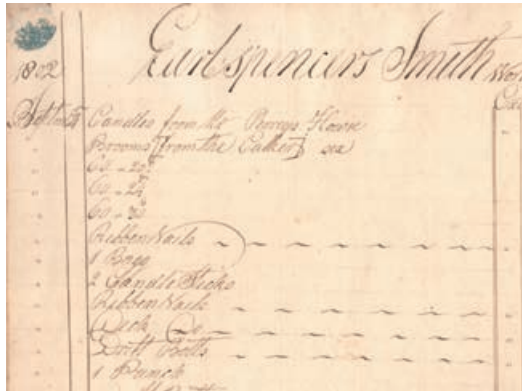 Earl Spencers Smith Wor
1802
Septm
Candles from Mr Perrys House
Brooms from the Calker six
60 - 20d
60 - 24
60 - 30
Ribben Nails
1 Bagg
2 Candle Sticks
Ribben Nails
Deck Do
Drift Bolts
1 Punch